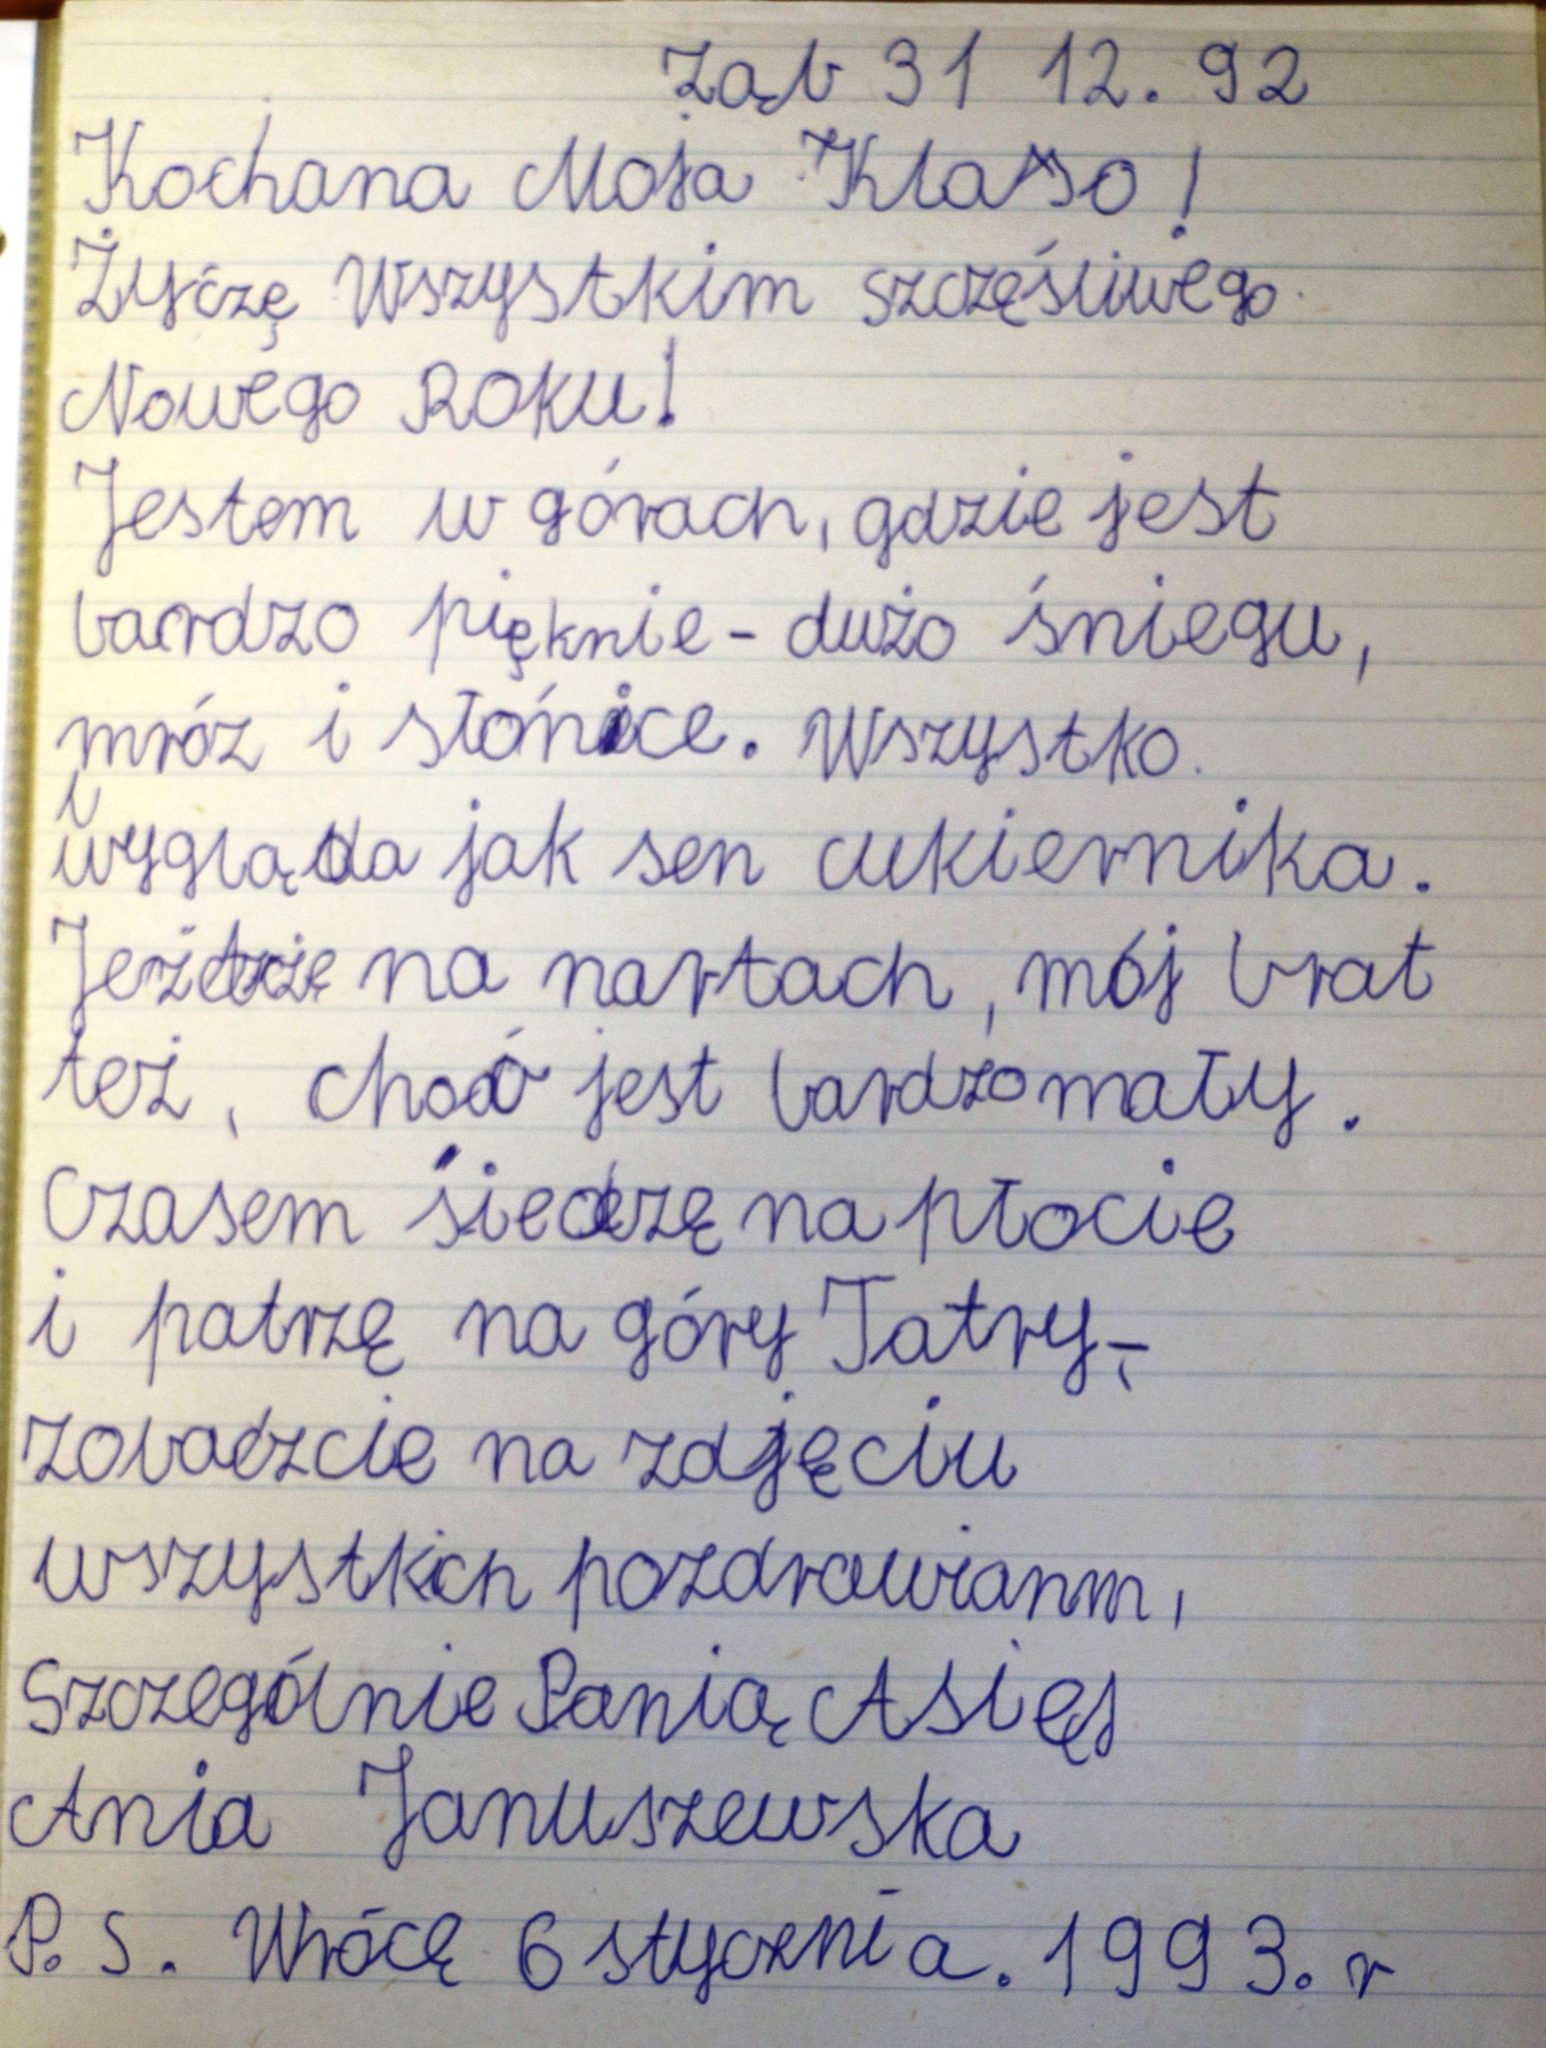 Ząb 31 12. 92
Kochana Moja Klaso!
Życzę Wszystkim szczęśliwego
Nowego Roku!
Jestem w górach, gdzie jest
bardzo pięknie - dużo śniegu,
mróz i słońce. Wszystko
wygląda jak sen cukiernika.
Jeżdżę na nartach, mój brat
też, choć jest bardzo mały.
Czasem siedzę na płocie
i patrzę na góry Tatry,-
zobaczcie na zdjęciu
wszystkich pozdrawianm,
Szczególnie Panią Asię
Ania Januszewska
P.S. Wrócę 6 stycznia. 1993. r